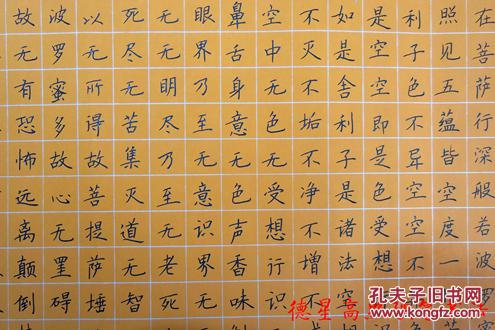 在菩萨行深般若波
照见五蕴皆空度一
利子色不异空空不
是空空即是色受想
如是舍利子是诸法空
不灭不垢不净不增不
空中无色无受想行识
鼻舌身意无色声香味
眼界乃至无意识界无
无无明尽乃至无老死
死尽无苦集灭道无智
以无所得故菩提萨埵
波罗蜜多故心无罣碍
故无有恐怖远离颠倒
德星高
孔夫子旧书网